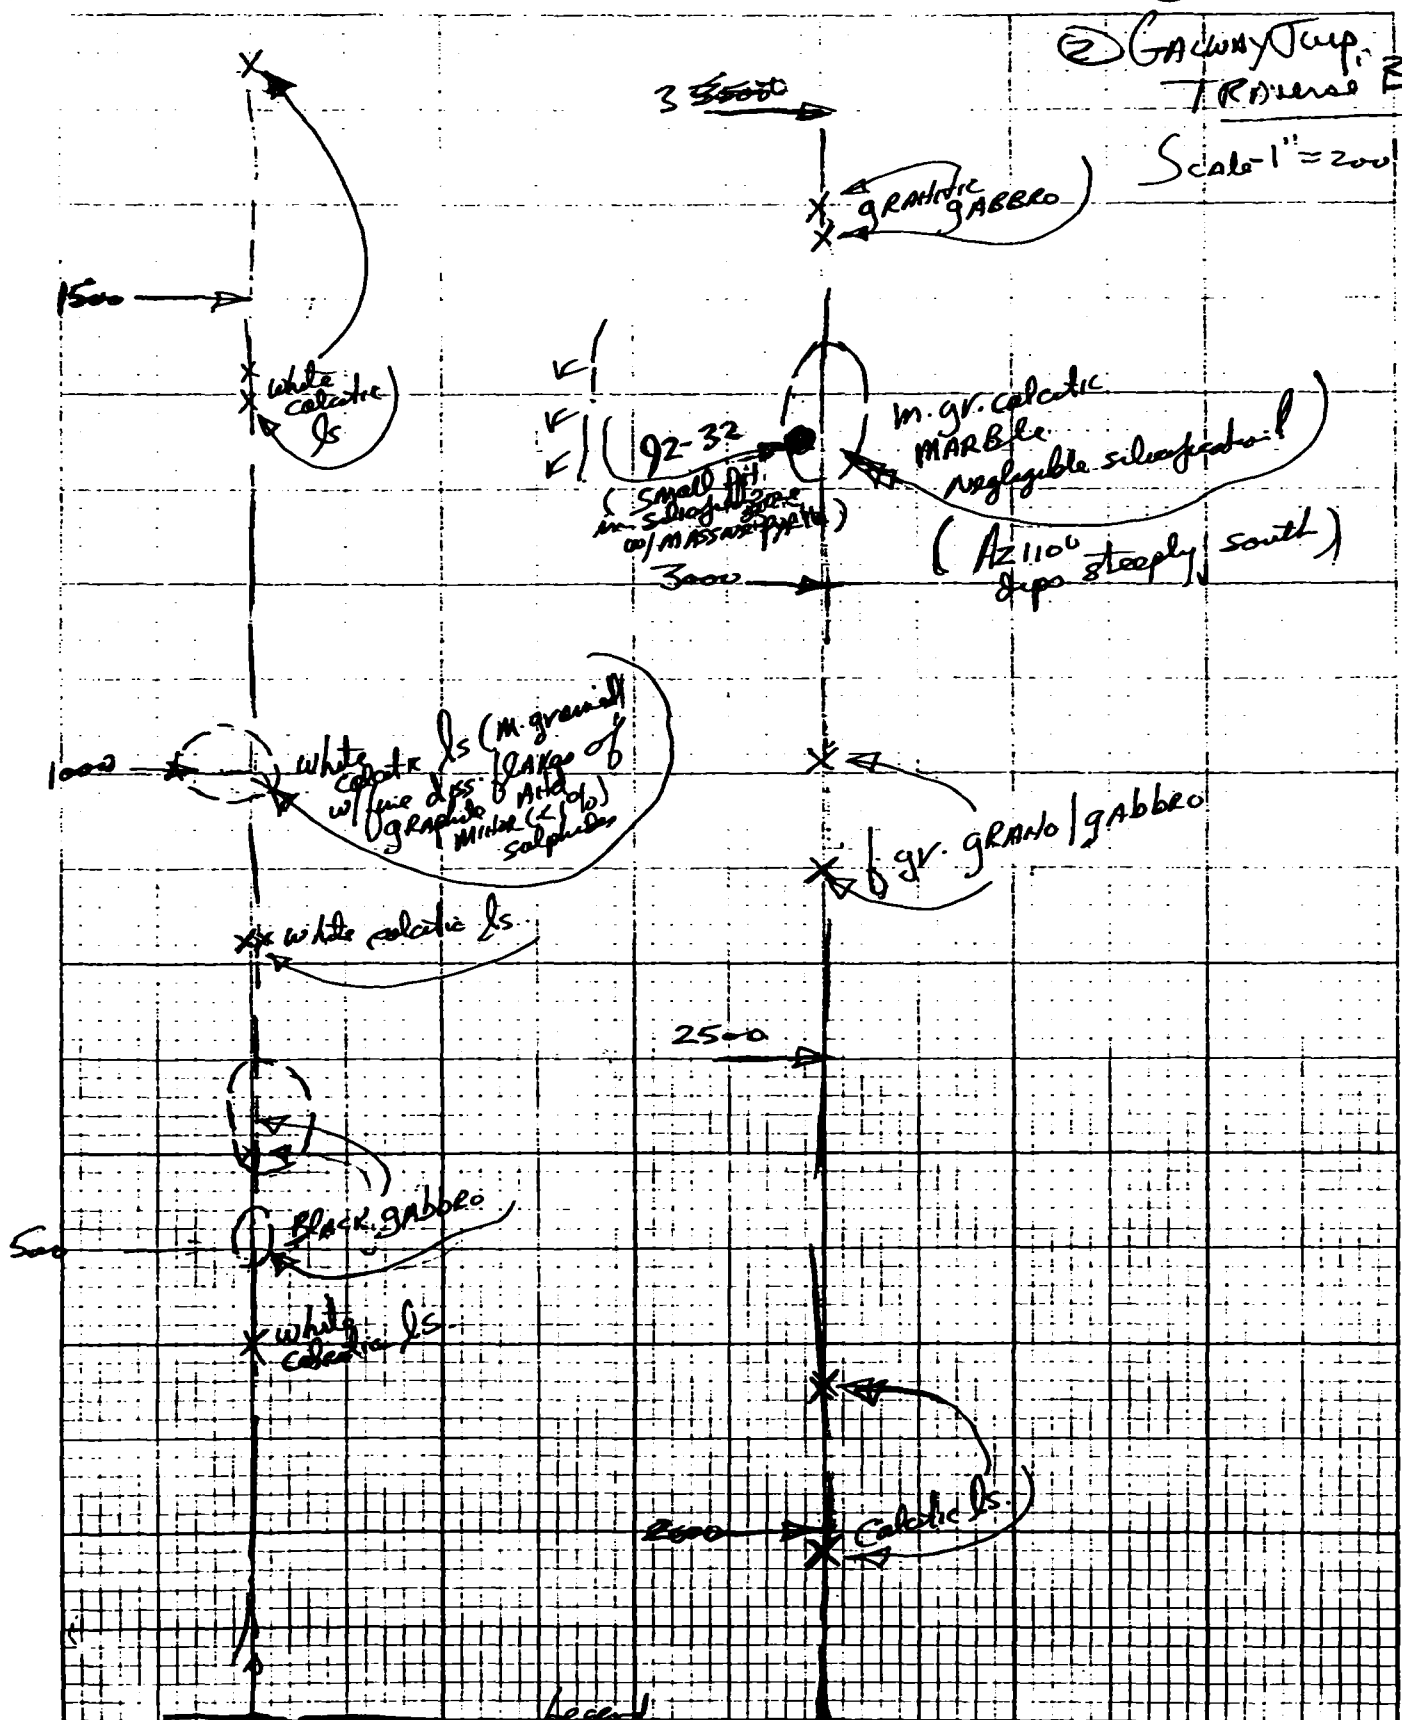 ② GALWAY Twp.
TRAVERSE
Scale-1"=200'
3500
granitic
gABBRO
1500
white
calcitic
ls
92-32
(Small pit
in silicified zone
w/ massive pyrite)
m.gr. calcitic
MARBle
negligible silicification
(Az 110°
dips steeply south)
3000
1000
white
calcitic ls (m. grained
w/ fine diss. flakes of
graphite AND
minor (<1%)
sulphides
f gr. gRANO/gAbbRO
white calcitic ls.
2500
BLACK gAbbRO
500
white
calcitic ls.
calcitic ls.
2000
Legend